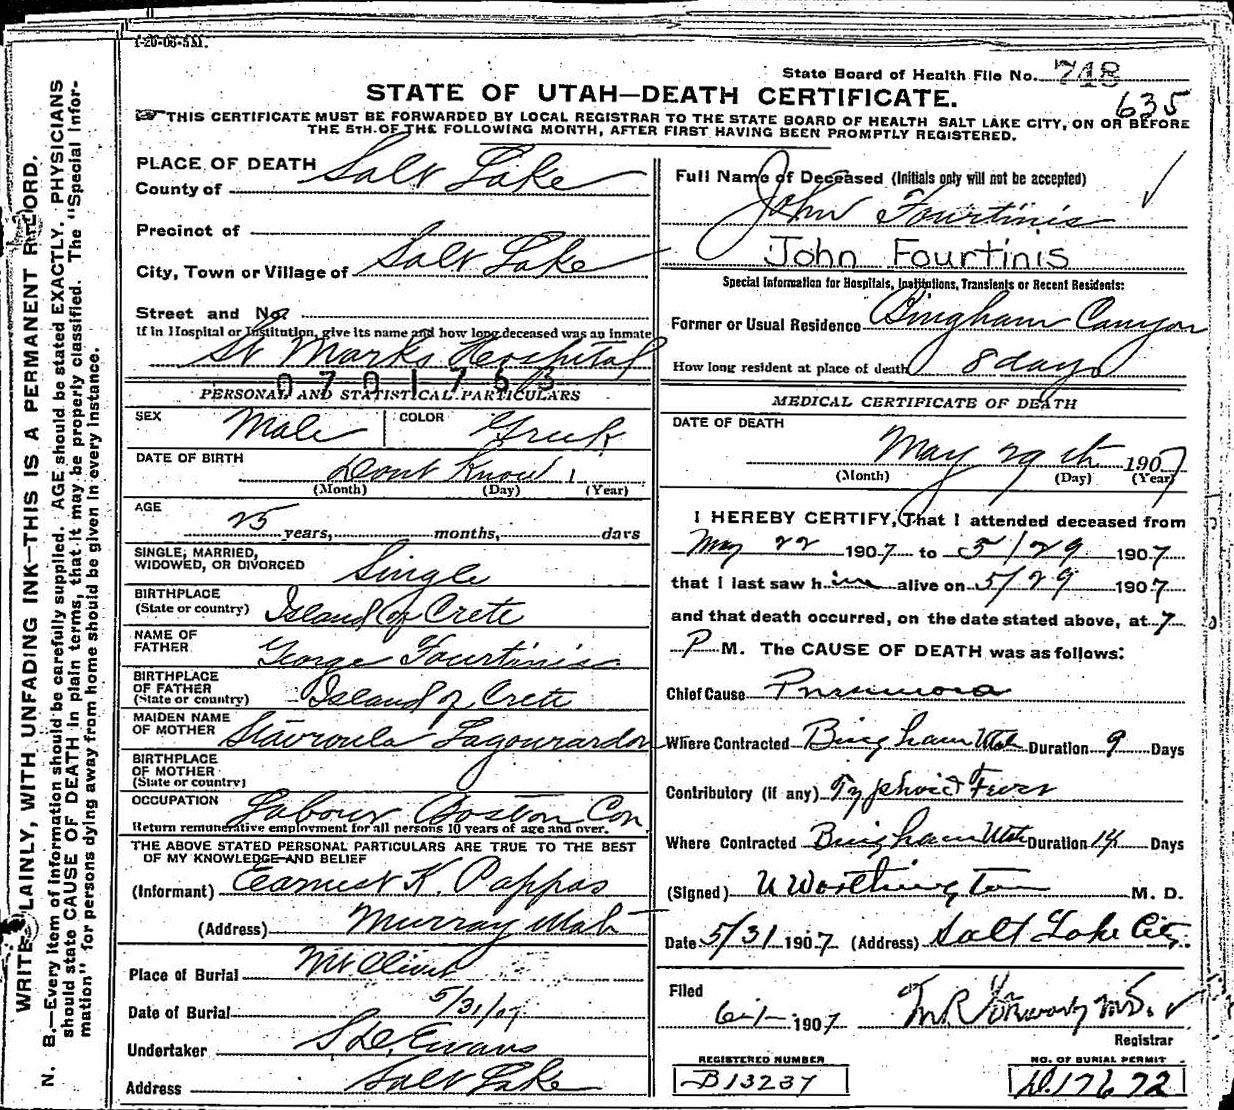 1-20-06-5M.
State Board of Health File No. 748
635
STATE OF UTAH—DEATH CERTIFICATE.
THIS CERTIFICATE MUST BE FORWARDED BY LOCAL REGISTRAR TO THE STATE BOARD OF HEALTH SALT LAKE CITY, ON OR BEFORE
THE 5TH OF THE FOLLOWING MONTH, AFTER FIRST HAVING BEEN PROMPTLY REGISTERED.
WRITE PLAINLY, WITH UNFADING INK—THIS IS A PERMANENT RECORD.
N. B.—Every item of information should be carefully supplied. AGE should be stated EXACTLY. PHYSICIANS
should state CAUSE OF DEATH in plain terms, that it may be properly classified. The "Special Infor-
mation" for persons dying away from home should be given in every instance.
PLACE OF DEATH
County of Salt Lake
Precinct of
City, Town or Village of Salt Lake
Street and No.
If in Hospital or Institution, give its name and how long deceased was an inmate
St Marks Hospital
0701753
PERSONAL AND STATISTICAL PARTICULARS
SEX Male COLOR Greek
DATE OF BIRTH Dont Know
(Month) (Day) (Year)
AGE
25 years, months, days
SINGLE, MARRIED,
WIDOWED, OR DIVORCED Single
BIRTHPLACE
(State or country) Island of Crete
NAME OF
FATHER George Fourtinis
BIRTHPLACE
OF FATHER
(State or country) Island of Crete
MAIDEN NAME
OF MOTHER Stavroula Lagourardon
BIRTHPLACE
OF MOTHER
(State or country)
OCCUPATION Labour Boston Con
Return remunerative employment for all persons 10 years of age and over.
THE ABOVE STATED PERSONAL PARTICULARS ARE TRUE TO THE BEST
OF MY KNOWLEDGE AND BELIEF
(Informant) Earnest K. Pappas
(Address) Murray Utah
Place of Burial Mt Olivet
Date of Burial 5/31/07
Undertaker S D Evans
Address Salt Lake
Full Name of Deceased (Initials only will not be accepted)
John Fourtinis
John Fourtinis
Special Information for Hospitals, Institutions, Transients or Recent Residents:
Former or Usual Residence Bingham Canyon
How long resident at place of death 8 days
MEDICAL CERTIFICATE OF DEATH
DATE OF DEATH
May 29th 1907
(Month) (Day) (Year)
I HEREBY CERTIFY, That I attended deceased from
May 22 1907 to 5/29 1907
that I last saw him alive on 5/29 1907
and that death occurred, on the date stated above, at 7
P M. The CAUSE OF DEATH was as follows:
Chief Cause Pneumonia
Where Contracted Bingham Utah Duration 9 Days
Contributory (if any) Typhoid Fever
Where Contracted Bingham Utah Duration 14 Days
(Signed) U Worthington M. D.
Date 5/31 1907 (Address) Salt Lake City.
Filed
6-1- 1907
Registrar
REGISTERED NUMBER
B13237
NO. OF BURIAL PERMIT
D.17672